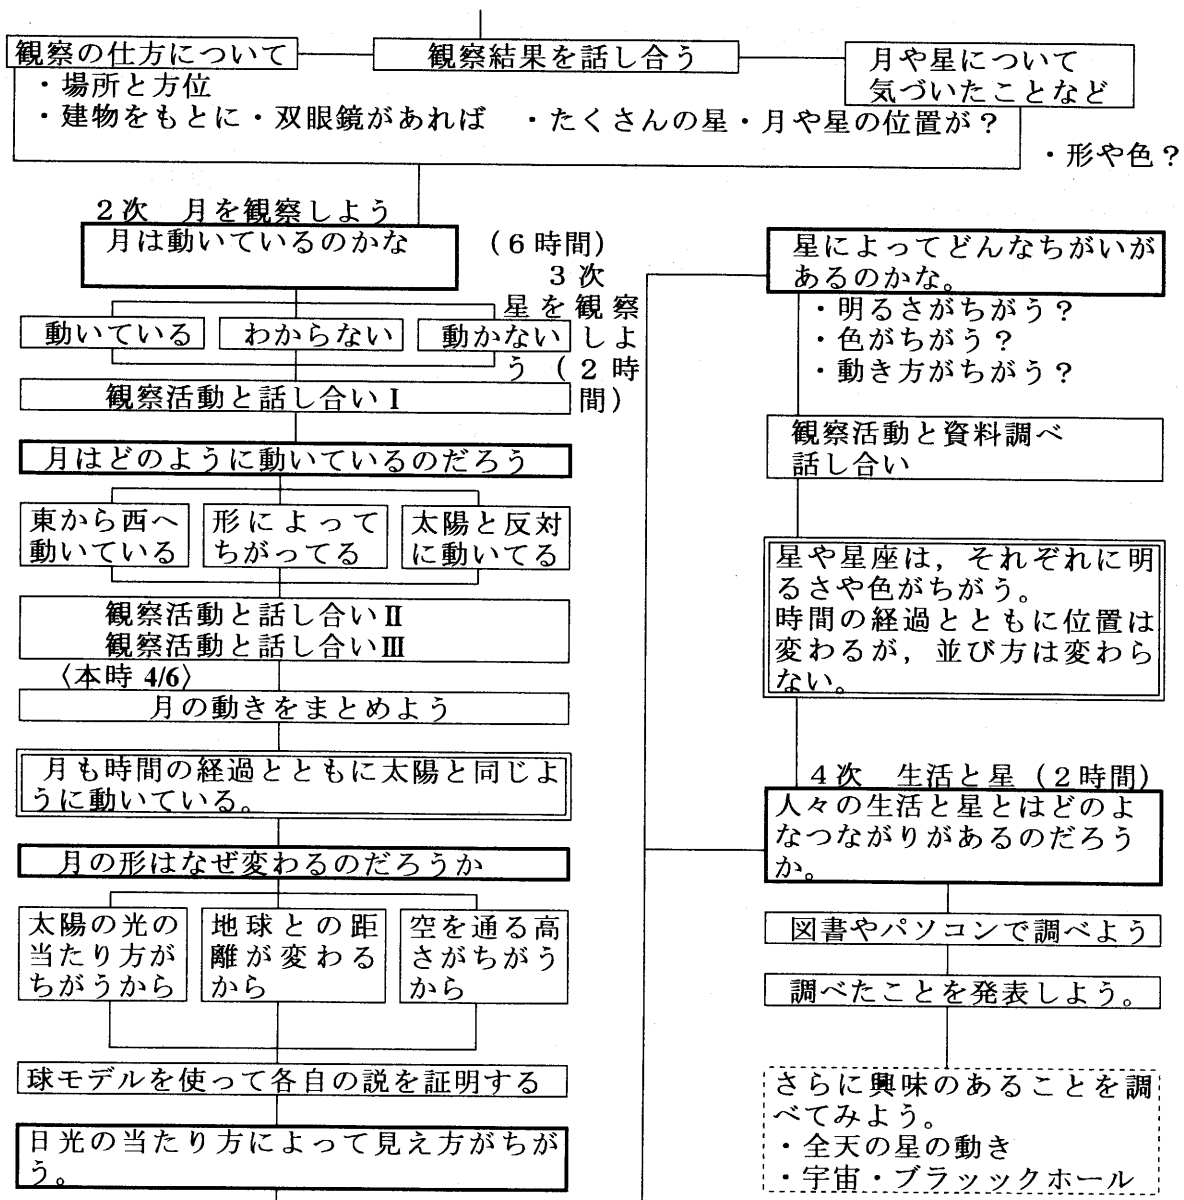 観察の仕方について
観察結果を話し合う
月や星について
気づいたことなど
・場所と方位
・建物をもとに・双眼鏡があれば ・たくさんの星・月や星の位置が？
・形や色？
２次 月を観察しよう
月は動いているのかな
（６時間）
動いている
わからない
動かない
観察活動と話し合いⅠ
月はどのように動いているのだろう
東から西へ
動いている
形によって
ちがってる
太陽と反対
に動いてる
観察活動と話し合いⅡ
観察活動と話し合いⅢ
〈本時 4/6〉
月の動きをまとめよう
月も時間の経過とともに太陽と同じよ
うに動いている。
月の形はなぜ変わるのだろうか
太陽の光の
当たり方が
ちがうから
地球との距
離が変わる
から
空を通る高
さがちがう
から
球モデルを使って各自の説を証明する
日光の当たり方によって見え方がちが
う。
３次
星を観察
しよ
う（２時
間）
星によってどんなちがいが
あるのかな。
・明るさがちがう？
・色がちがう？
・動き方がちがう？
観察活動と資料調べ
話し合い
星や星座は，それぞれに明
るさや色がちがう。
時間の経過とともに位置は
変わるが，並び方は変わら
ない。
４次 生活と星（２時間）
人々の生活と星とはどのよ
なつながりがあるのだろう
か。
図書やパソコンで調べよう
調べたことを発表しよう。
さらに興味のあることを調
べてみよう。
・全天の星の動き
・宇宙・ブラッックホール